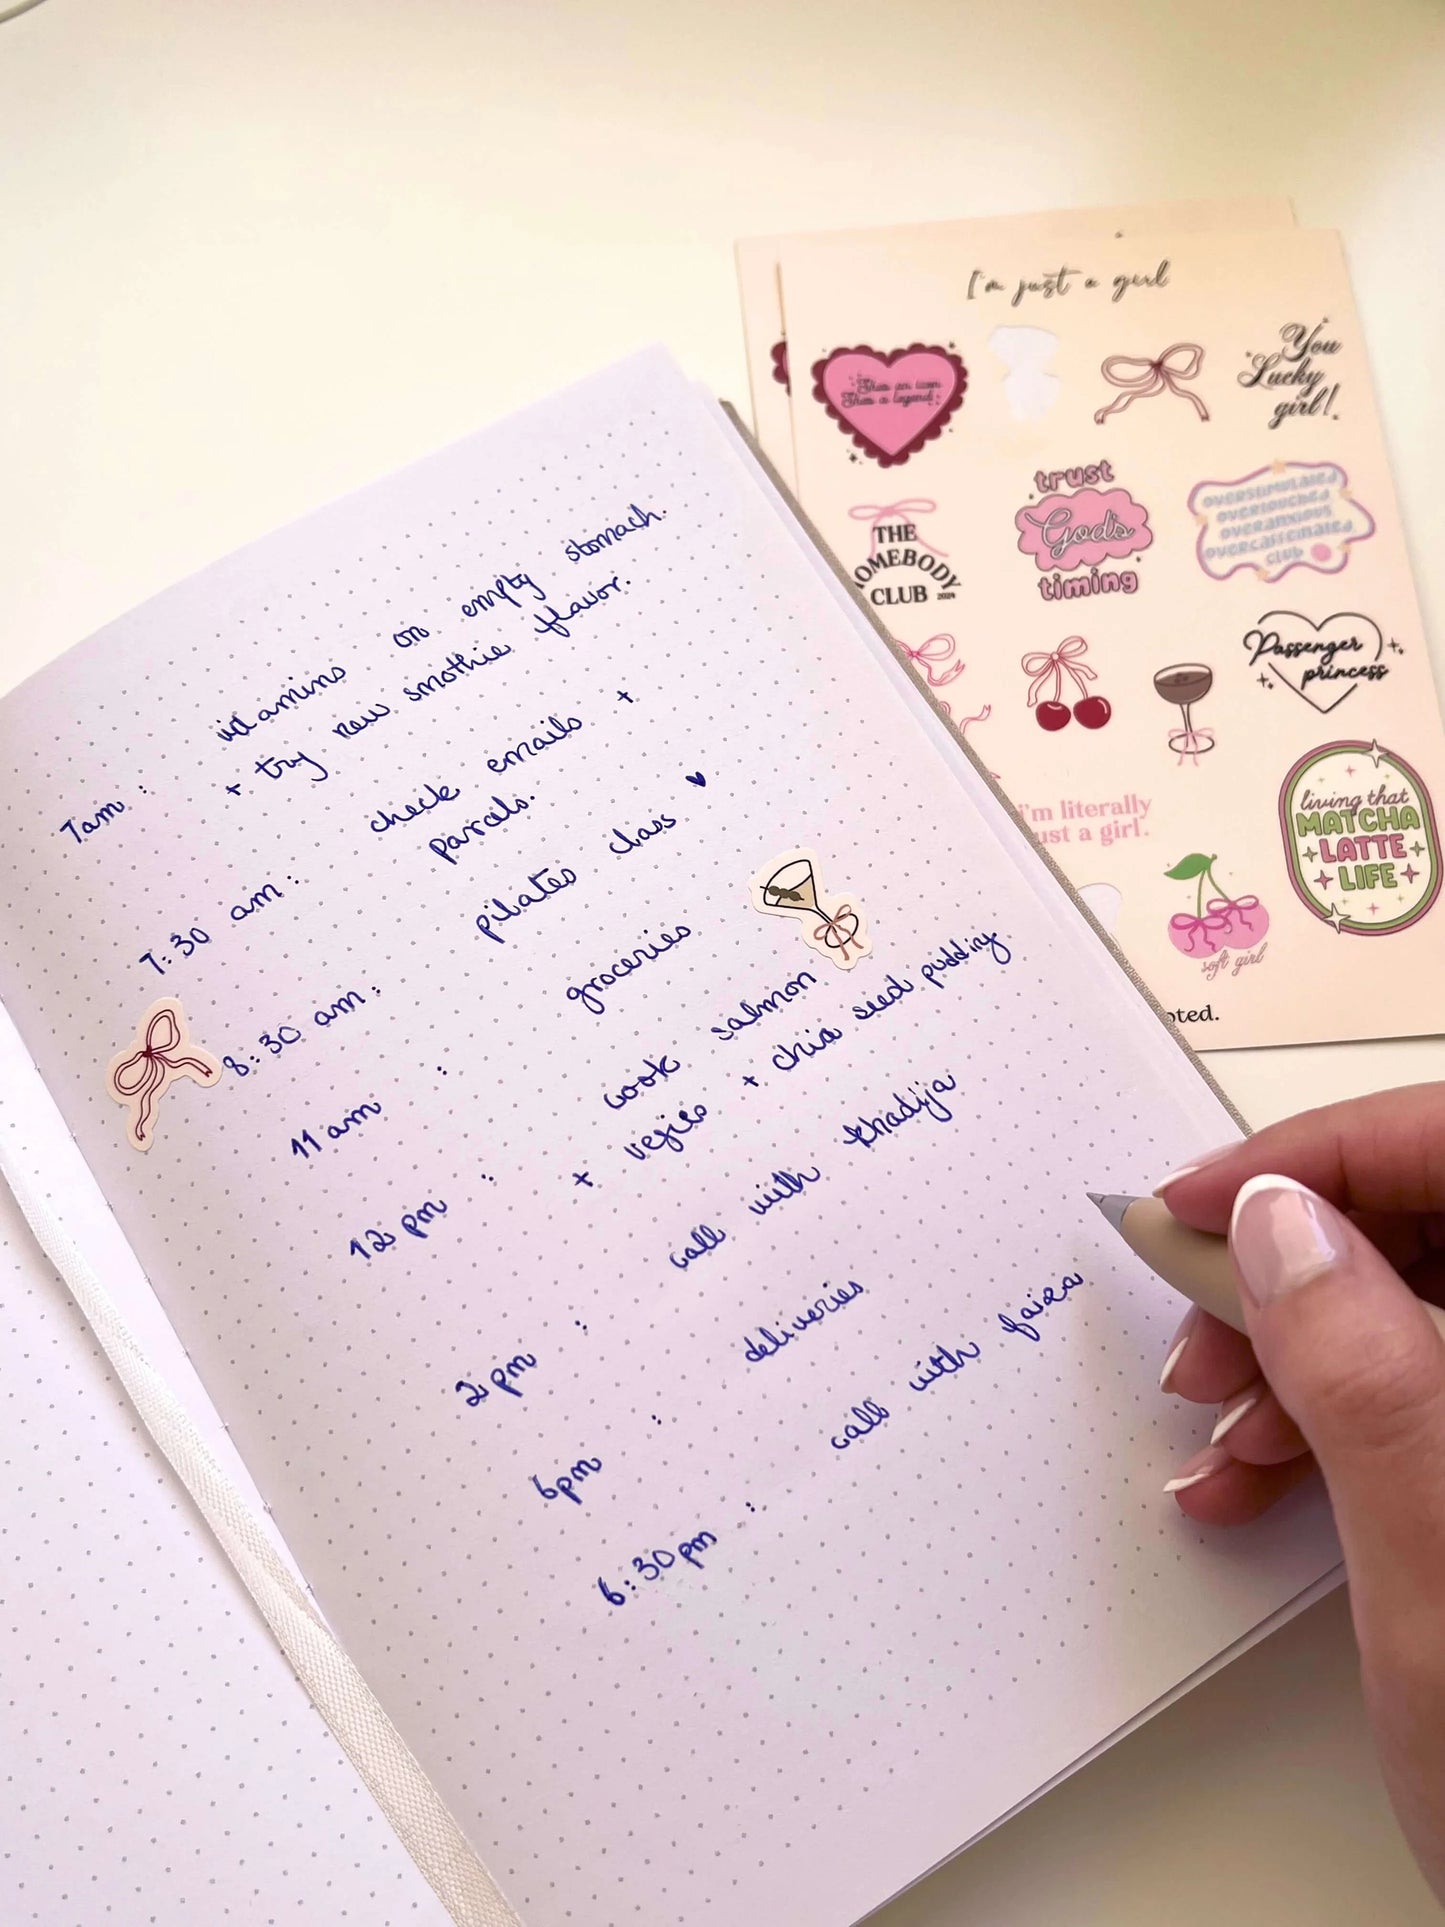 7am : vitamins on empty stomach.
+ try new smothie flavor.
7:30 am : check emails +
parcels.
8:30 am : pilates class
11 am : groceries
12 pm : cook salmon
+ vegies + chia seed pudding
2 pm : call with Khadija
6pm : deliveries
6:30pm : call with faiza
I'm just a girl
She's an icon
She's a legend
You
Lucky
girl!
THE
HOMEBODY
CLUB 2024
trust
God's
timing
OVERSTIMULATED
OVERTOUCHED
OVERANXIOUS
OVERCAFFEINATED
CLUB
Passenger
princess
i'm literally
just a girl.
living that
MATCHA
LATTE
LIFE
soft girl
oted.